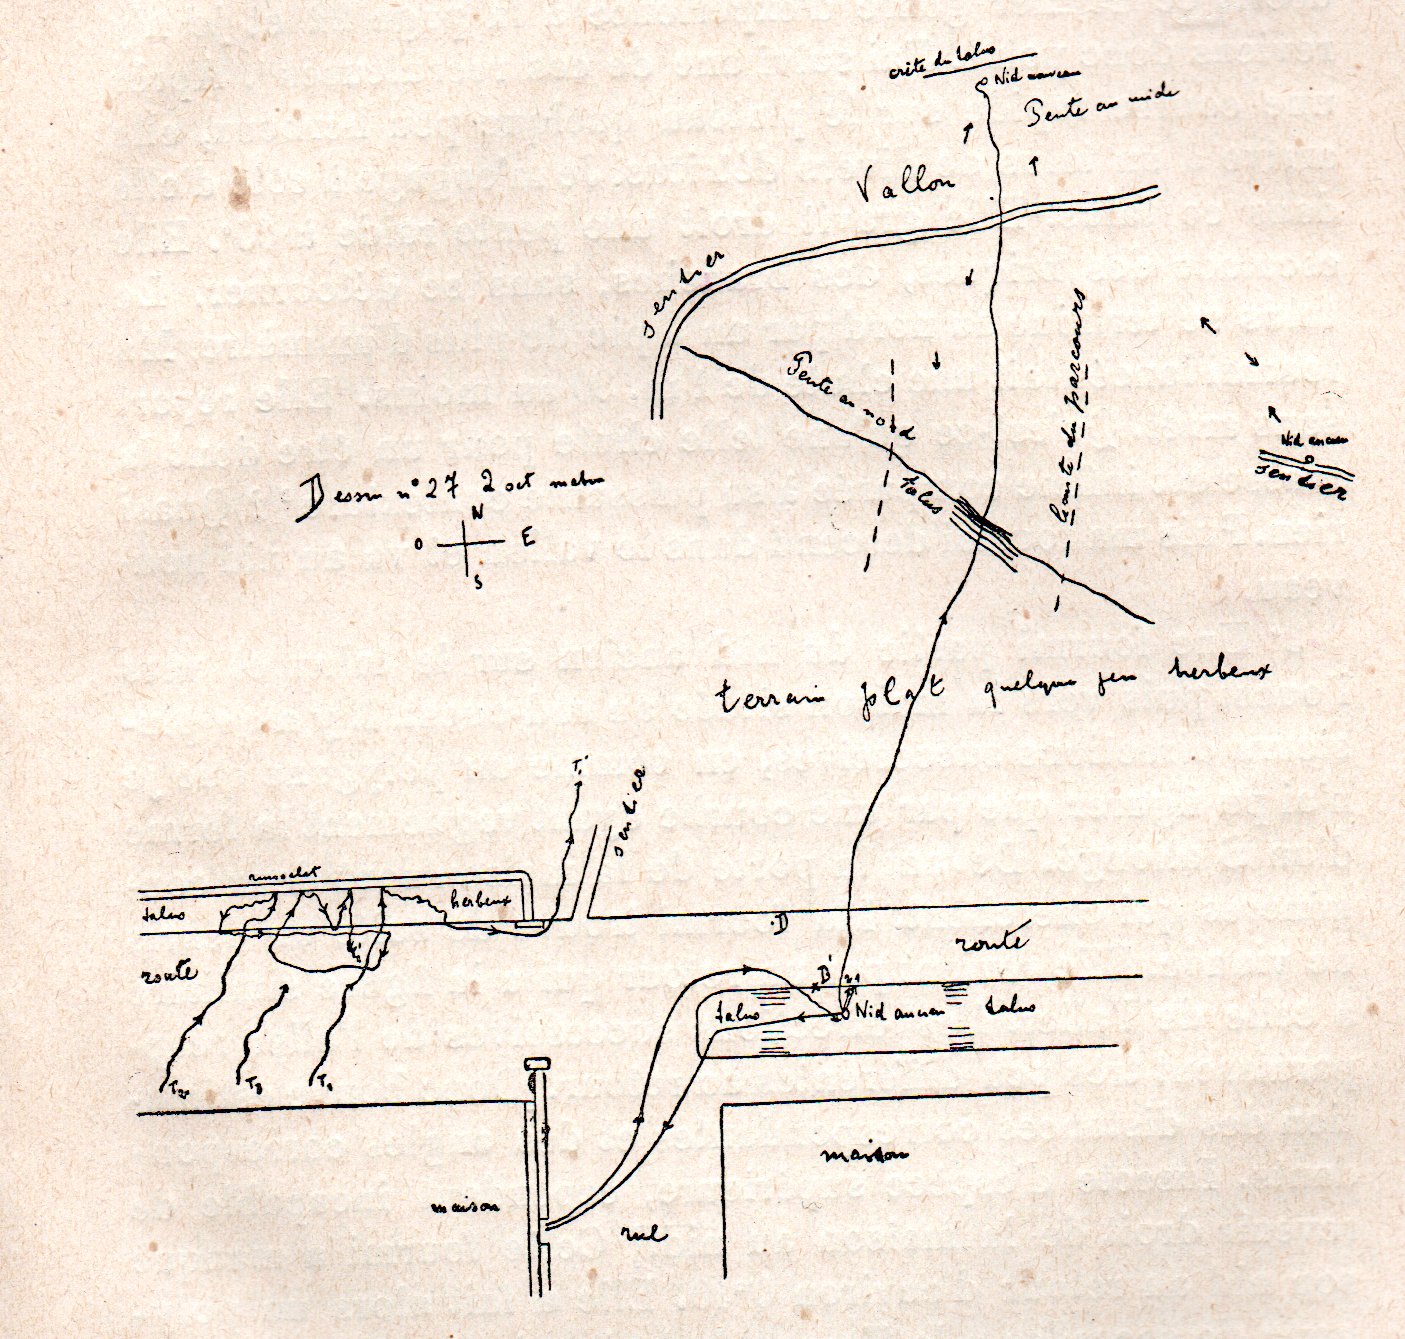 crête du talus
Nid nouveau
Pente au midi
Vallon
sentier
Pente au nord
talus
Limite du parcours
Nid ancien
sentier
Dessin n° 27 2 oct matin
N
O E
S
terrain plat quelque peu herbeux
T'
sentier
ruisselet
talus herbeux
D
route
route
B'
talus Nid ancien talus
T2 T3 T1
maison
maison
rue